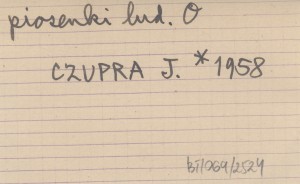 piosenki lud. O
CZUPRA J. *1958
BI/069/2524